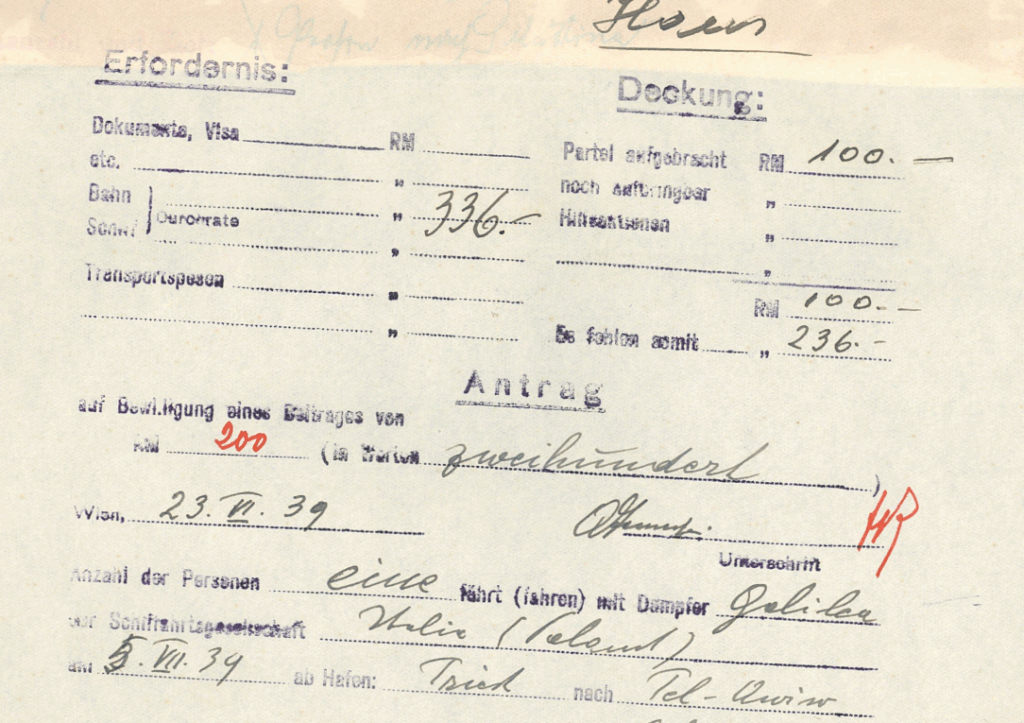 Erfordernis:
Deckung:
Dokumente, Visa RM
etc. "
Bahn
Schiff } Durchrate " 336.-
"
Transportspesen "
"
Partei aufgebracht RM 100.—
noch aufbringbar "
Hilfsaktionen "
"
RM 100.—
Es fehlen somit " 236.-
Antrag
auf Bewilligung eines Beitrages von
RM 200 (in Worten zweihundert )
Wien, 23. VI. 39
Unterschrift
Anzahl der Personen eine fährt (fahren) mit Dampfer Galilea
der Schiffahrtsgesellschaft Italia
am 5. VII. 39 ab Hafen: Triest nach Tel-Awiw